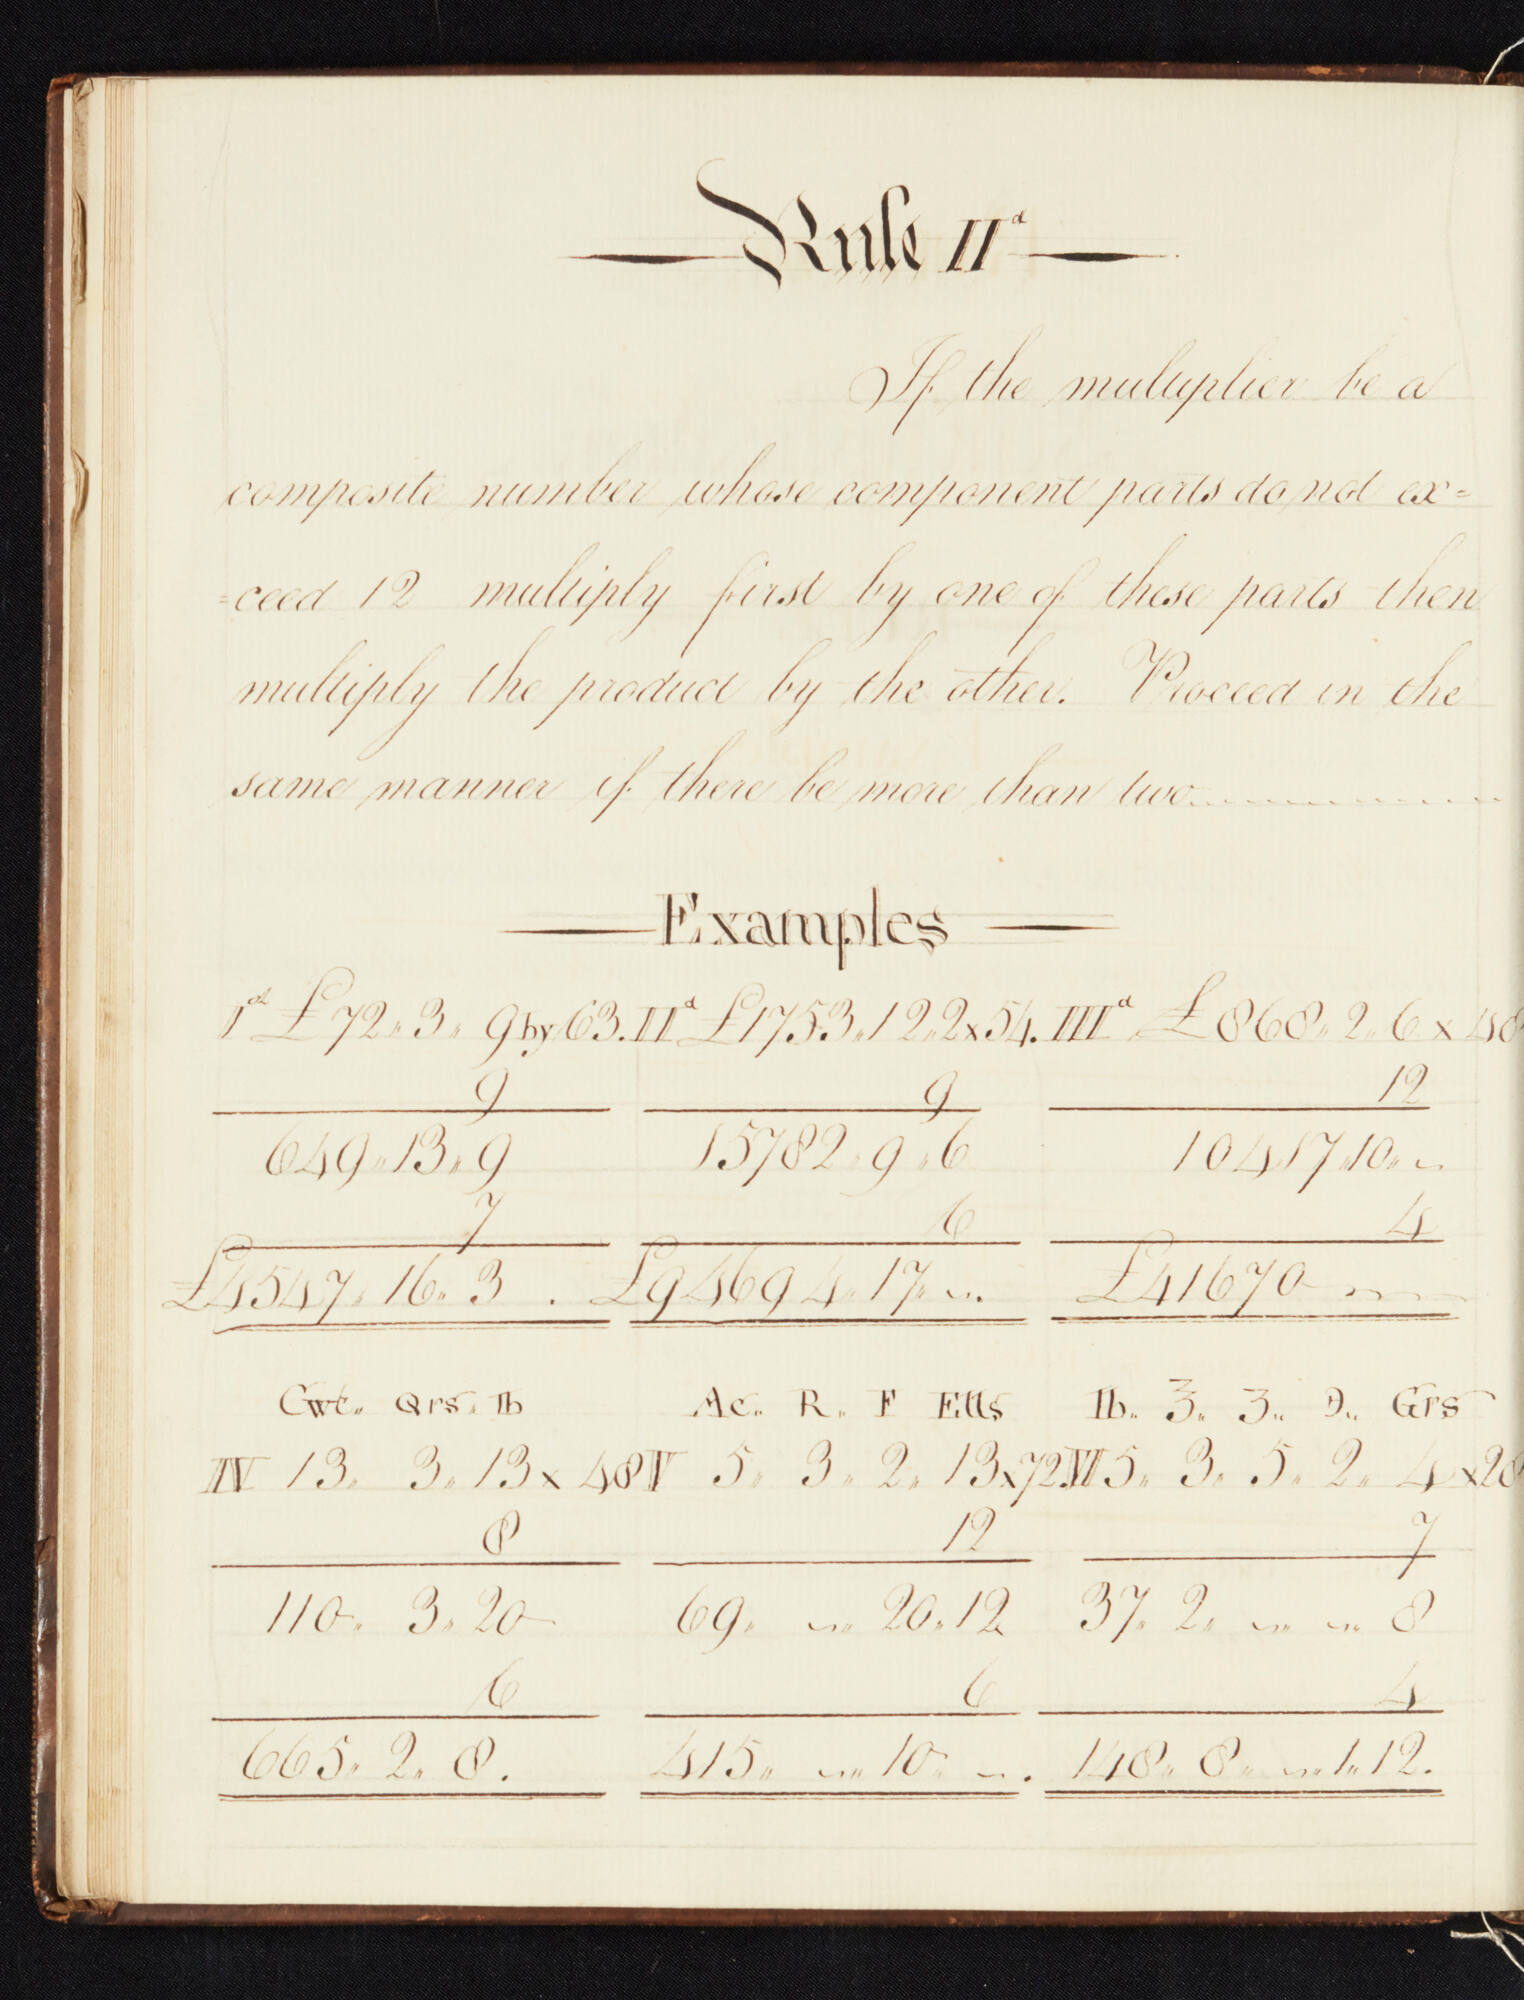 Rule IIᵈ
If the multiplier be a
composite number whose component parts do not ex=
=ceed 12 multiply first by one of these parts then
multiply the product by the other. Proceed in the
same manner if there be more than two
Examples
Iˢᵗ £72 „ 3 „ 9 by 63. IIᵈ £1753 „ 12 „ 2 x 54. IIIᵈ £868 „ 2 „ 6 x 48
9 9 12
649 „ 13 „ 9 15782 „ 9 „ 6 10417 „ 10 „ ~
7 6 4
£4547 „ 16 „ 3 . £94694 „ 17 „ ~. £41670 ~ ~
Cwt. Qrs. lb Ac. R. F Ells lb. ℥. ʒ. ℈. Grs
IV 13 „ 3 „ 13 x 48 V 5 „ 3 „ 2 „ 13 x 72. VI 5 „ 3 „ 5 „ 2 „ 4 x 28
8 12 7
110 „ 3 „ 20 69 „ ~ „ 20 „ 12 37 „ 2 „ ~ „ ~ „ 8
6 6 4
665 „ 2 „ 8. 415 „ ~ „ 10 „ ~. 148 „ 8 „ ~ „ 1 „ 12.